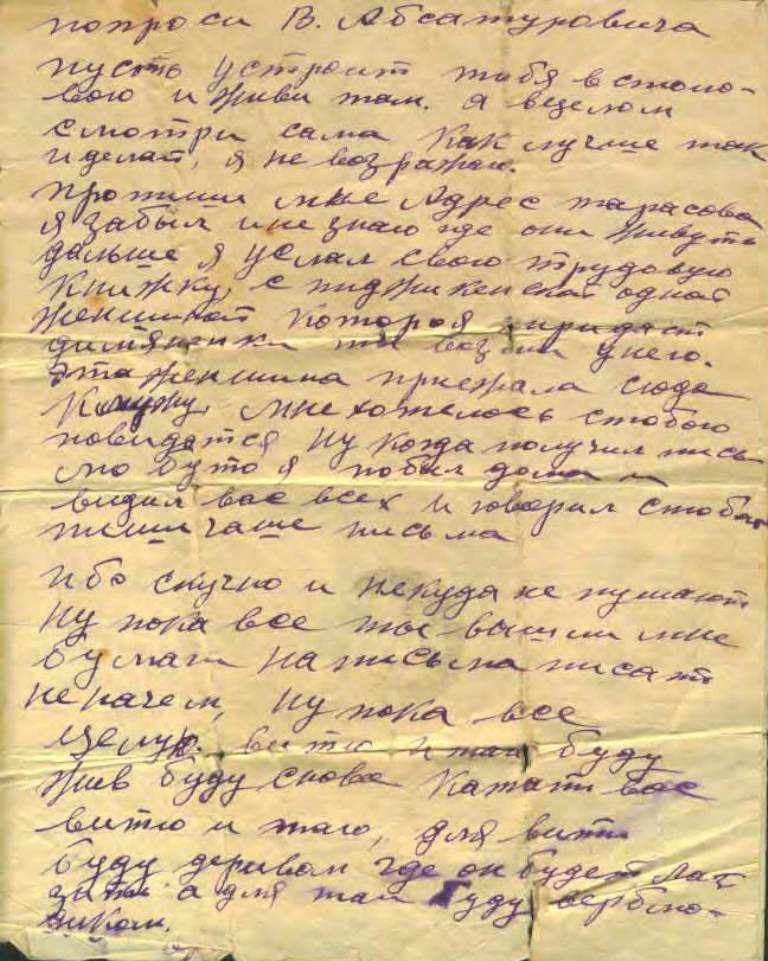 попроси В. Абсатуровича
пусть устроит тебя в столо-
вою и живи там. а вцелом
смотри сама как лучше так
и делай, я не возражаю.
пропиши мне Адрес тарасова
я забыл и не знаю где они живуть
дальше я услал свою трудовую
книжку, с одной
женшиной которая придаст
ты возми унего.
эта женшина приежала сюда
к мужу, мне хотелось стобою
повидатся Ну когда получил пись
мо буто я побыл дома и
видил вас всех и говорил стобой
пиши чаше письма
ибо скучно и некуда не пушают
Ну пока все ты вышли мне
бумаги на письма писат
не начем, Ну пока все
Целую. витю и таи буду
жив буду снова катат вас
витю и таю, для вити
буду деривом где он будет лаз
зить а для таи буду верблю-
диком.